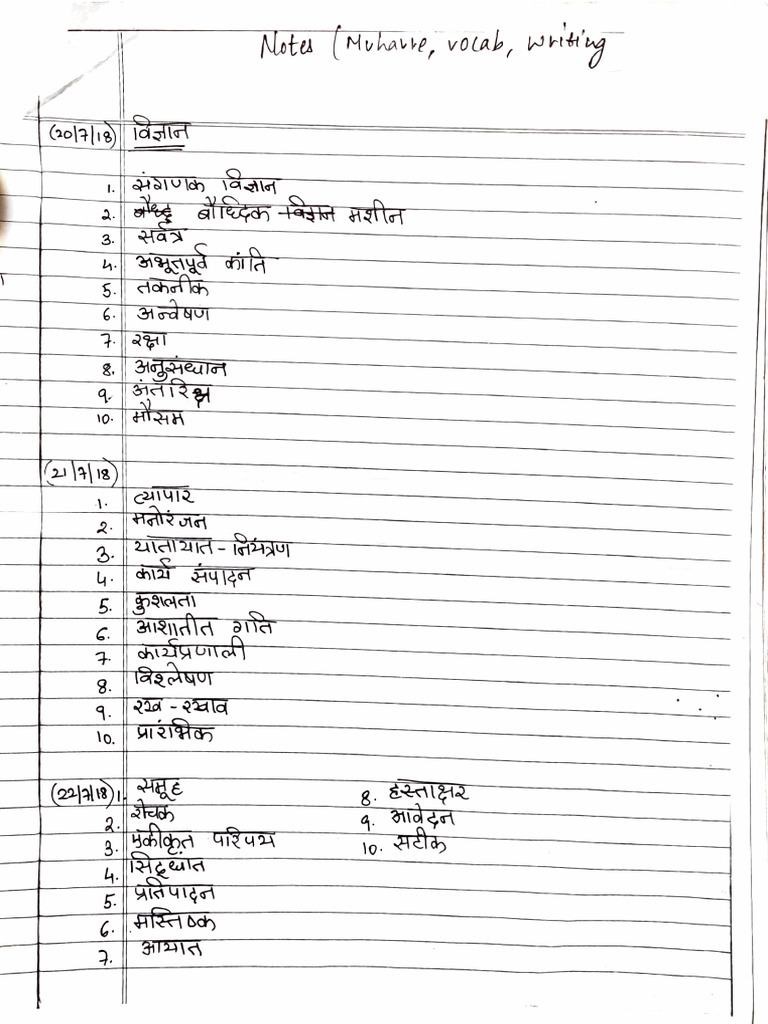 Notes (Muhavre, vocab, writing
(20/7/18) विज्ञान
1. संगणक विज्ञान
2. बौध्दिक-विज्ञान मशीन
3. सर्वत्र
4. अभूतपूर्व क्रांति
5. तकनीक
6. अन्वेषण
7. रक्षा
8. अनुसंधान
9. अंतरिक्ष
10. मौसम
(21/7/18)
1. व्यापार
2. मनोरंजन
3. यातायात-नियंत्रण
4. कार्य संपादन
5. कुशलता
6. आशातीत गति
7. कार्यप्रणाली
8. विश्लेषण
9. रख-रखाव
10. प्रारंभिक
(22/7/18) 1. समूह
2. रोचक
3. एकीकृत परिपथ
4. सिद्धांत
5. प्रतिपादन
6. मस्तिष्क
7. आयात
8. हस्ताक्षर
9. आवेदन
10. सटीक